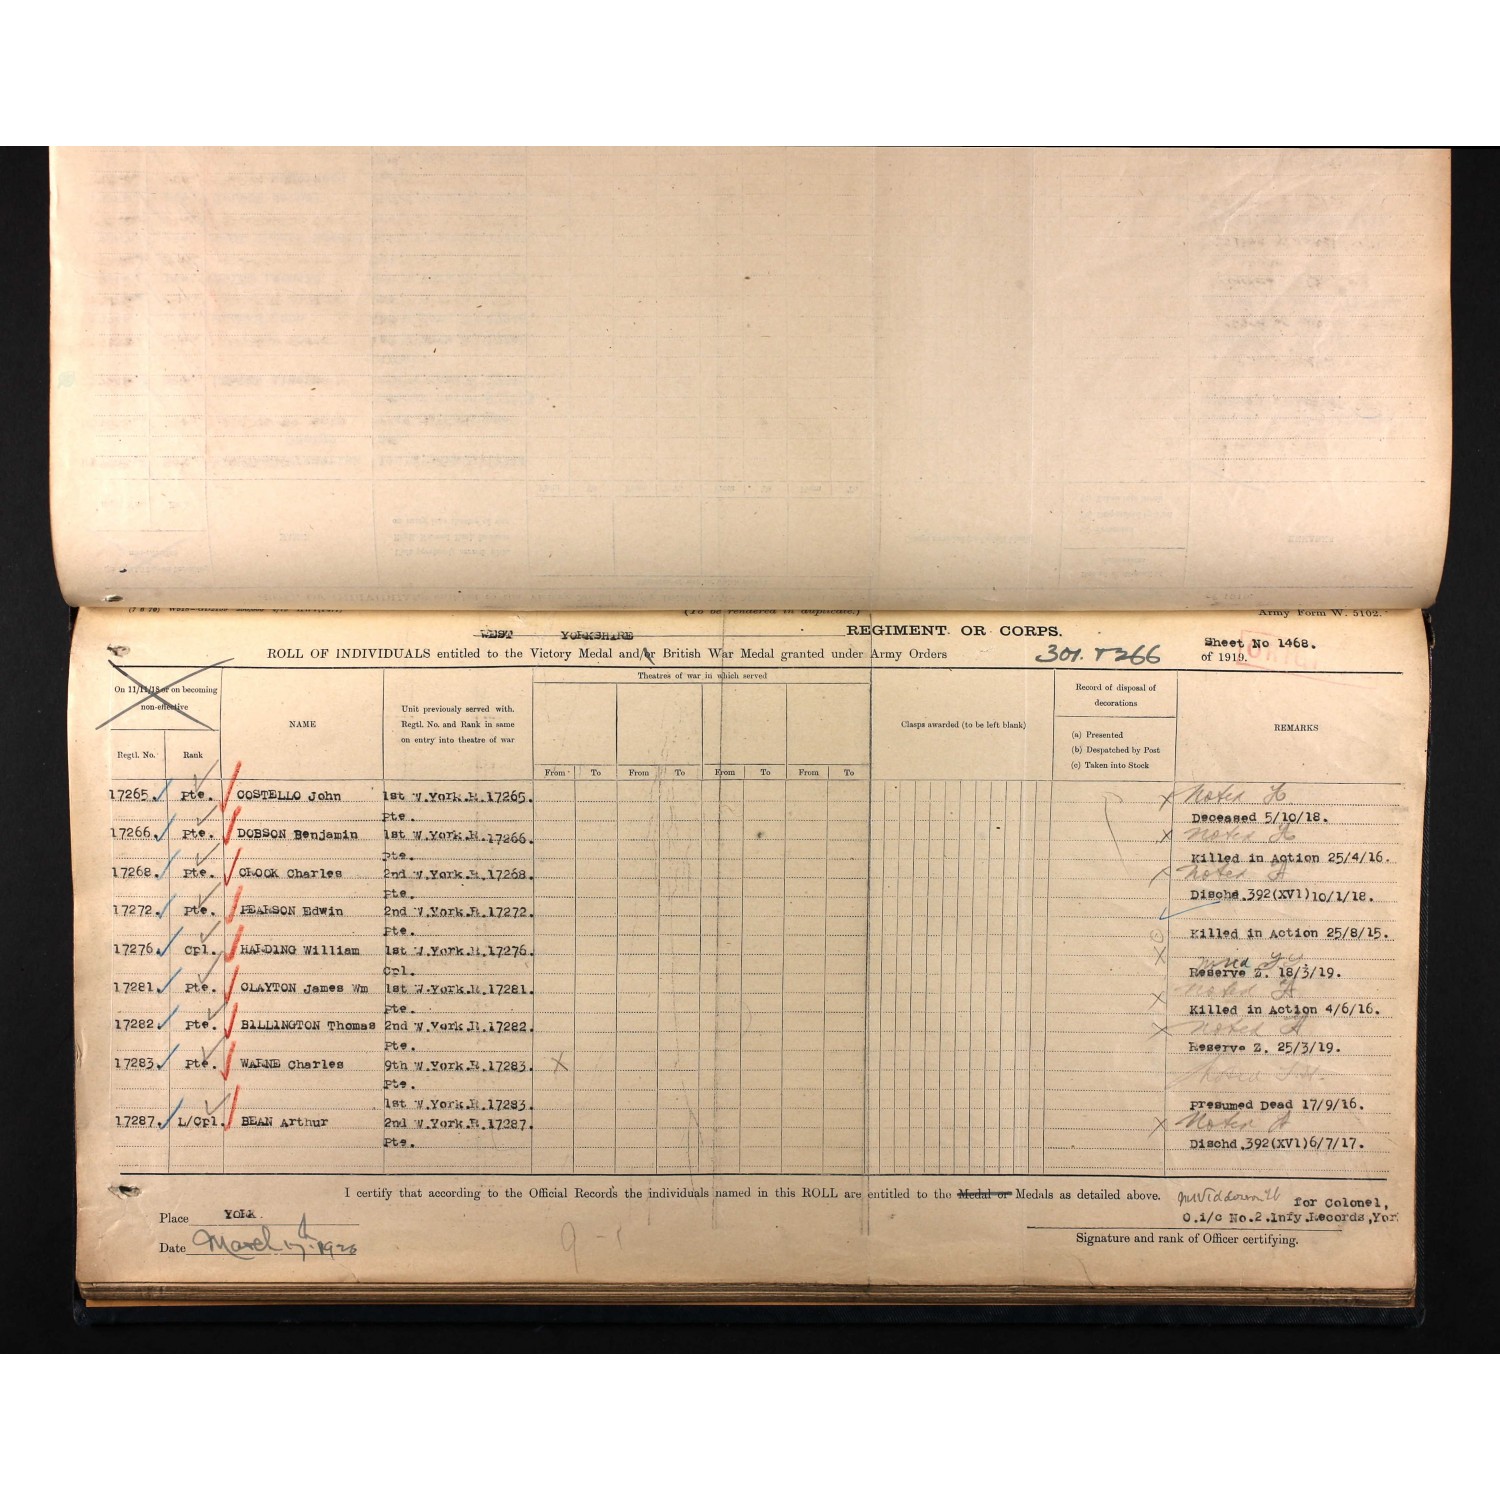 (To be rendered in duplicate.)
Army Form W. 5102.
WEST YORKSHIRE REGIMENT OR CORPS.
Sheet No 1468.
ROLL OF INDIVIDUALS entitled to the Victory Medal and/or British War Medal granted under Army Orders 301. & 266 of 1919.
On 11/11/18 or on becoming non-effective
Regtl. No.
Rank
NAME
Unit previously served with. Regtl. No. and Rank in same on entry into theatre of war
Theatres of war in which served
From To From To From To From To
Clasps awarded (to be left blank)
Record of disposal of decorations
(a) Presented
(b) Despatched by Post
(c) Taken into Stock
REMARKS
17265. Pte. COSTELLO John 1st W.York.R.17265. Noted
Pte. Deceased 5/10/18.
17266. Pte. DOBSON Benjamin 1st W.York.R.17266. Noted
Pte. Killed in Action 25/4/16.
17268. Pte. CROOK Charles 2nd W.York.R.17268. Noted
Pte. Dischd.392(XVI)10/1/18.
17272. Pte. PEARSON Edwin 2nd W.York.R.17272.
Pte. Killed in Action 25/8/15.
17276. Cpl. HARDING William 1st W.York.R.17276.
Cpl. Reserve Z. 18/3/19.
17281. Pte. CLAYTON James Wm 1st W.York.R.17281. Noted
Pte. Killed in Action 4/6/16.
17282. Pte. BILLINGTON Thomas 2nd W.York.R.17282. Noted
Pte. Reserve Z. 25/3/19.
17283. Pte. WARNE Charles 9th W.York.R.17283. Noted
Pte.
1st W.York.R.17283. Presumed Dead 17/9/16.
17287. L/Cpl. BEAN Arthur 2nd W.York.R.17287. Noted
Pte. Dischd.392(XVI)6/7/17.
I certify that according to the Official Records the individuals named in this ROLL are entitled to the Medal or Medals as detailed above.
for Colonel,
Place YORK.
O.i/c No.2.Infy.Records,Yor
Date March 17th 1920
Signature and rank of Officer certifying.